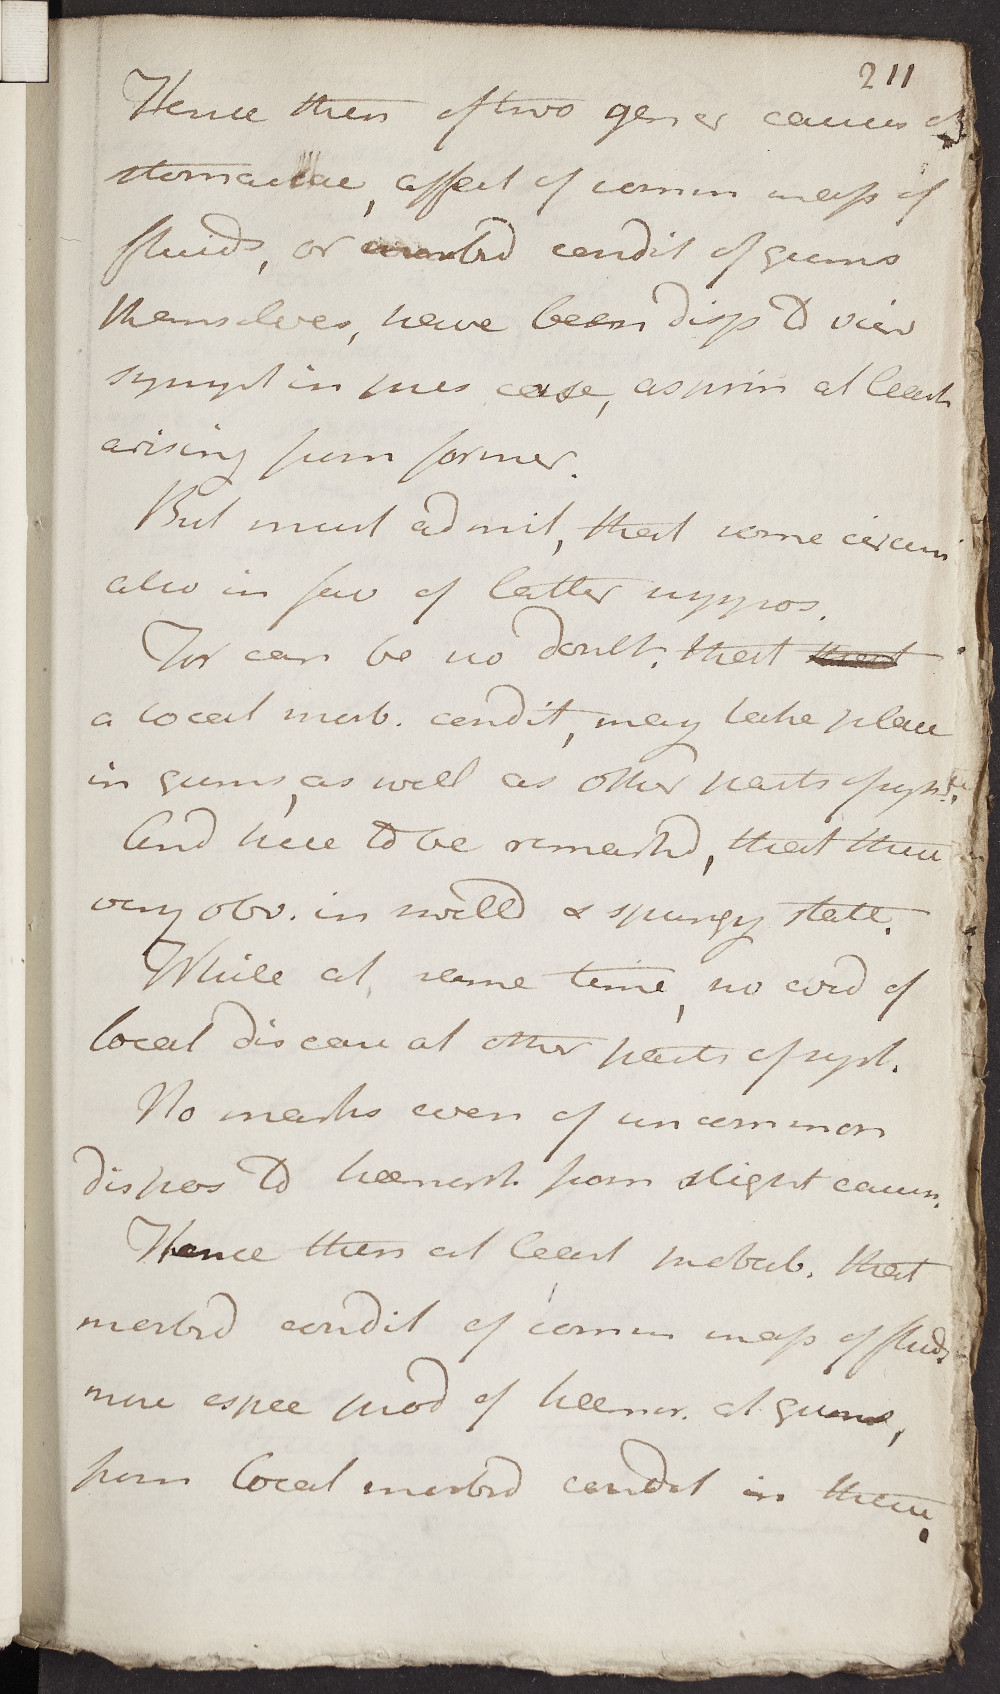 211
Hence then of two gener causes of
stomacae, affect of comm mass of
fluids, or morbid condit of gums
themselves, have been dispd to view
sympt in pres case, as prin at least
arising from former.
But must admit, that some circum
also in fav of latter suppos.
For can be no doubt, that that
a local morb. condit, may take place
in gums, as well as other parts of syst.
And here to be remarkd, that these
very obv. in swelld & spungy state.
While at same time, no evid of
local disease at other parts of syst.
No marks even of uncommon
dispos to haemorh. from slight causes.
Hence then at least probab. that
morbid condit of comm mass of fluids,
more espec prod of haemor. at gums,
from local morbid condit in them.